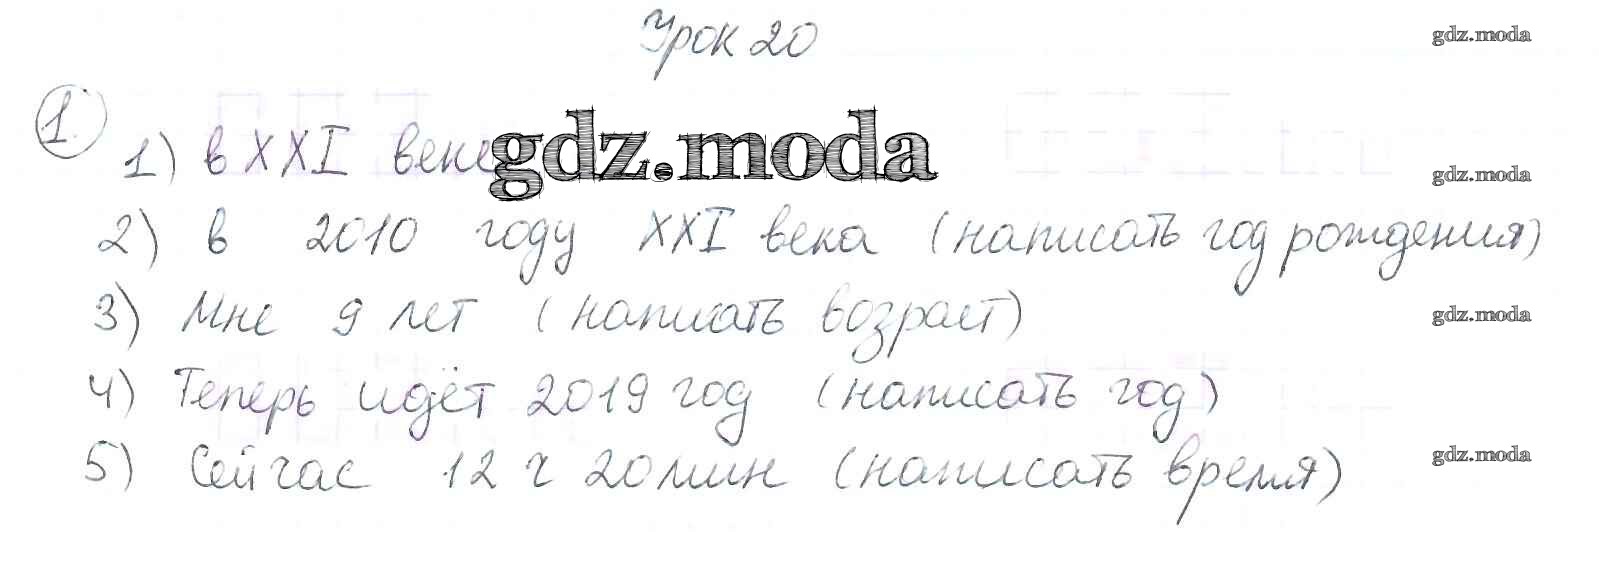 Урок 20
gdz.moda
1.
1) в XXI веке
gdz.moda
gdz.moda
2) в 2010 году XXI века (написать год рождения)
3) Мне 9 лет (написать возраст)
gdz.moda
4) Теперь идёт 2019 год (написать год)
5) Сейчас 12 ч 20 мин (написать время)
gdz.moda